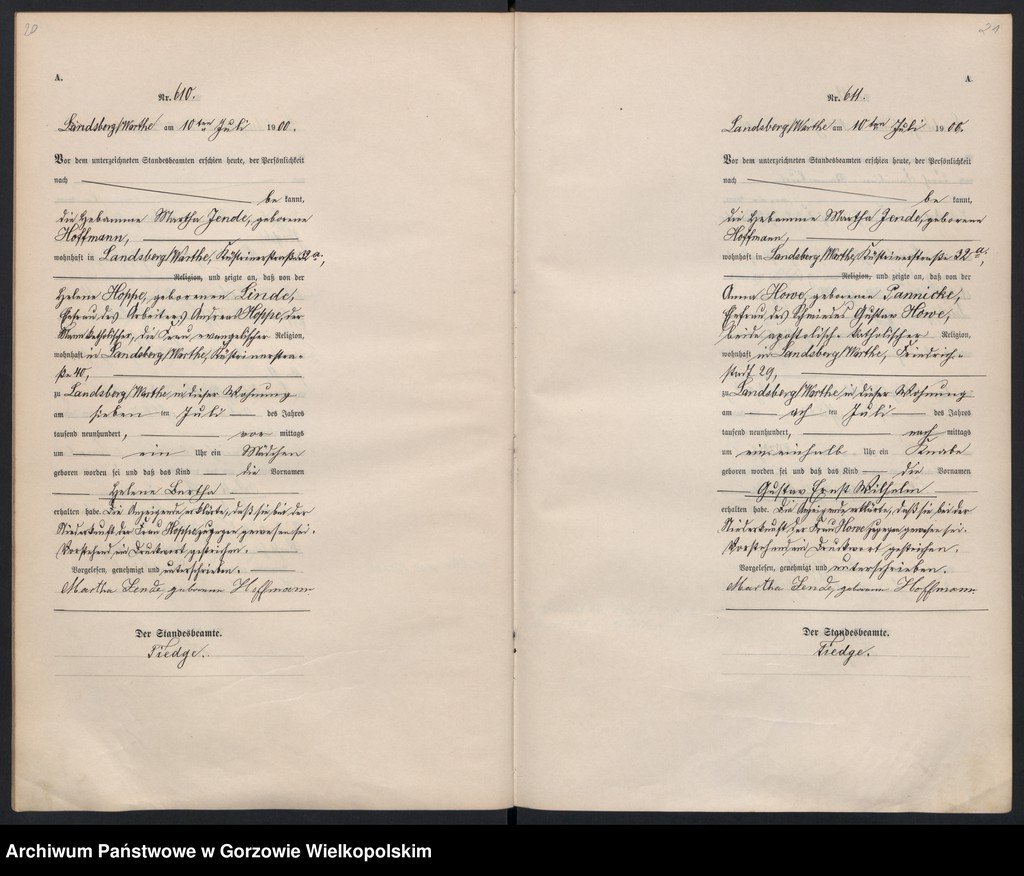 20
A.
Nr. 610.
Landsberg/Warthe am 10ten Juli 1900.
Vor dem unterzeichneten Standesbeamten erschien heute, der Persönlichkeit
nach
be kannt,
die Hebamme Martha Jende, geborene
Hoffmann,
wohnhaft in Landsberg/Warthe, Küstrinerstraße 32a.,
Religion, und zeigte an, daß von der
Helene Hoppe, geborenen Linde,
Ehefrau des Arbeiters Andreas Hoppe, der
Mann katholischer, die Frau evangelischer Religion,
wohnhaft in Landsberg/Warthe, Küstrinerstra-
ße 40,
zu Landsberg/Warthe, in dieser Wohnung
am sieben ten Juli des Jahres
tausend neunhundert, vor mittags
um ein Uhr ein Mädchen
geboren worden sei und daß das Kind die Vornamen
Helene Bertha
erhalten habe. Die Anzeigende erklärte, daß sie bei der
Niederkunft der Frau Hoppe zugegen gewesen sei.
Vorstehend ein Druckwort gestrichen.
Vorgelesen, genehmigt und unterschrieben.
Martha Jende, geborene Hoffmann
Der Standesbeamte.
Tiedge.
21
A.
Nr. 611.
Landsberg/Warthe am 10ten Juli 1900.
Vor dem unterzeichneten Standesbeamten erschien heute, der Persönlichkeit
nach
be kannt,
die Hebamme Martha Jende, geborene
Hoffmann,
wohnhaft in Landsberg/Warthe, Küstrinerstraße 32a.,
Religion, und zeigte an, daß von der
Anna Howe, geborenen Pannicke,
Ehefrau des Schmiedes Gustav Howe,
beide apostolisch-katholischer Religion,
wohnhaft in Landsberg/Warthe, Friedrich-
stadt 29,
zu Landsberg/Warthe, in dieser Wohnung
am ach ten Juli des Jahres
tausend neunhundert, nach mittags
um Uhr ein Knabe
geboren worden sei und daß das Kind die Vornamen
Gustav Ernst Wilhelm
erhalten habe. Die Anzeigende erklärte, daß sie bei der
Niederkunft der Frau Howe zugegen gewesen sei.
Vorstehend ein Druckwort gestrichen.
Vorgelesen, genehmigt und unterschrieben.
Martha Jende, geborene Hoffmann
Der Standesbeamte.
Tiedge.
Archiwum Państwowe w Gorzowie Wielkopolskim